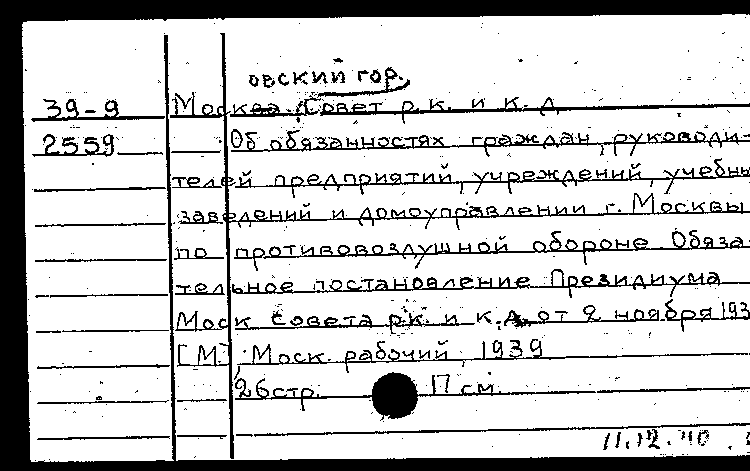 овский гор.
39-9 Москва. Совет р.к. и к.д
2559 Об обязанностях граждан, руководи-
телей предприятий, учреждений, учебны
заведений и домоуправлении г. Москвы
по противовоздушной обороне Обяза
тельное постановление Президиума
Моск Совета р.к. и к.д. от 2 ноября 193
[М.], Моск. рабочий, 1939
26 стр. 17 см.
11.12.40